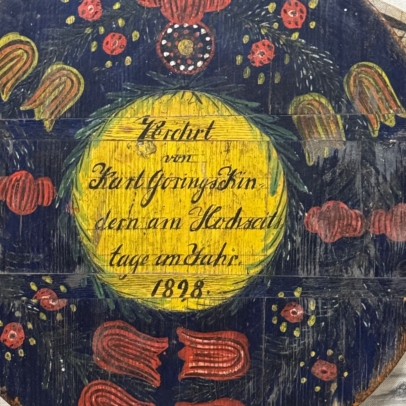 Verehrt
von
Karl Görings Kin
dern am Hochzeits
tage im Jahr.
1898.